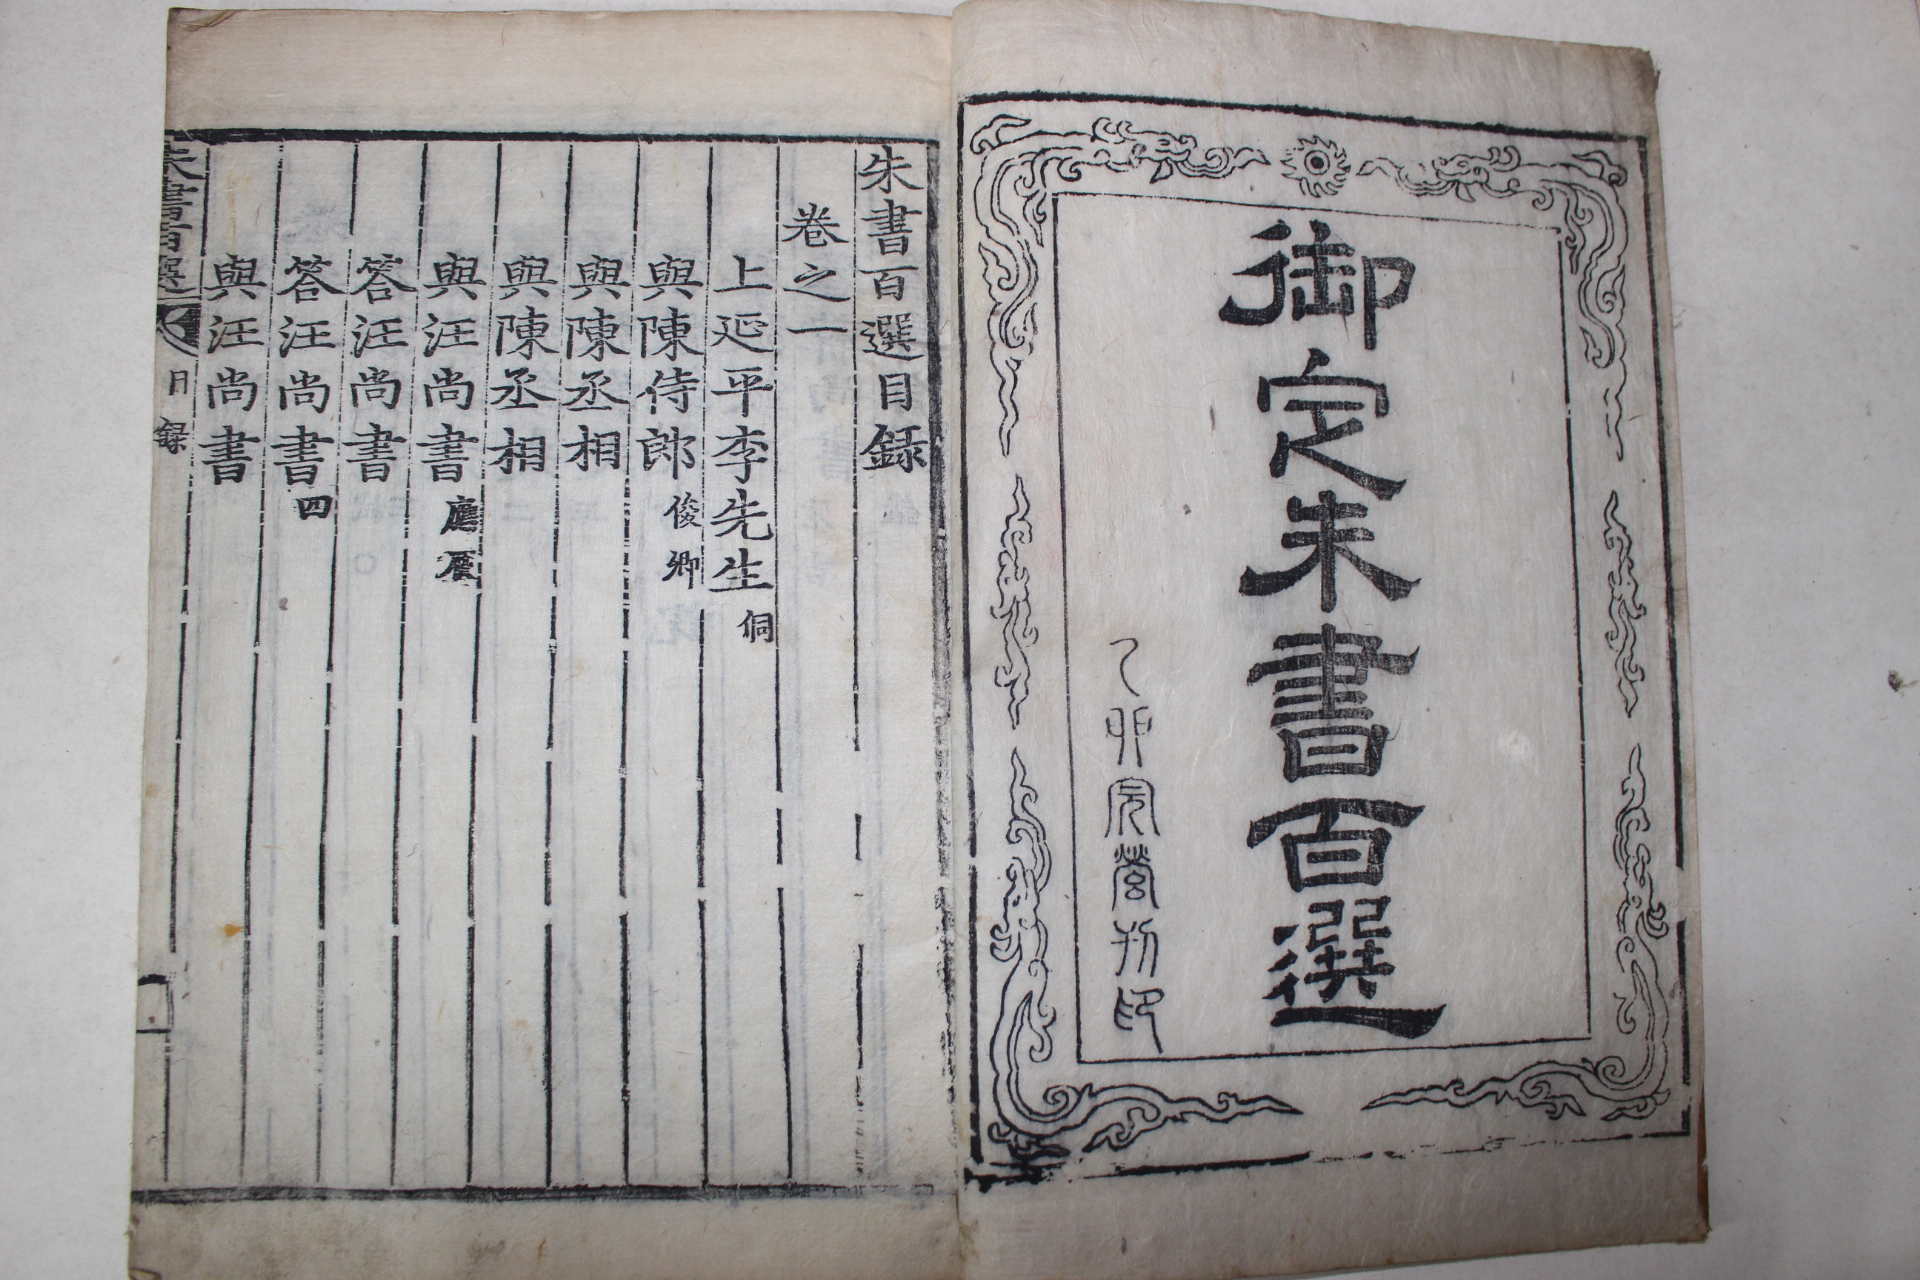 御定朱書百選
乙卯完營刊印
朱書百選目錄
卷之一
上延平李先生 侗
與陳侍郎 俊卿
與陳丞相
與陳丞相
與汪尚書 應辰
答汪尚書
答汪尚書 四
與汪尚書
朱書百選
目錄